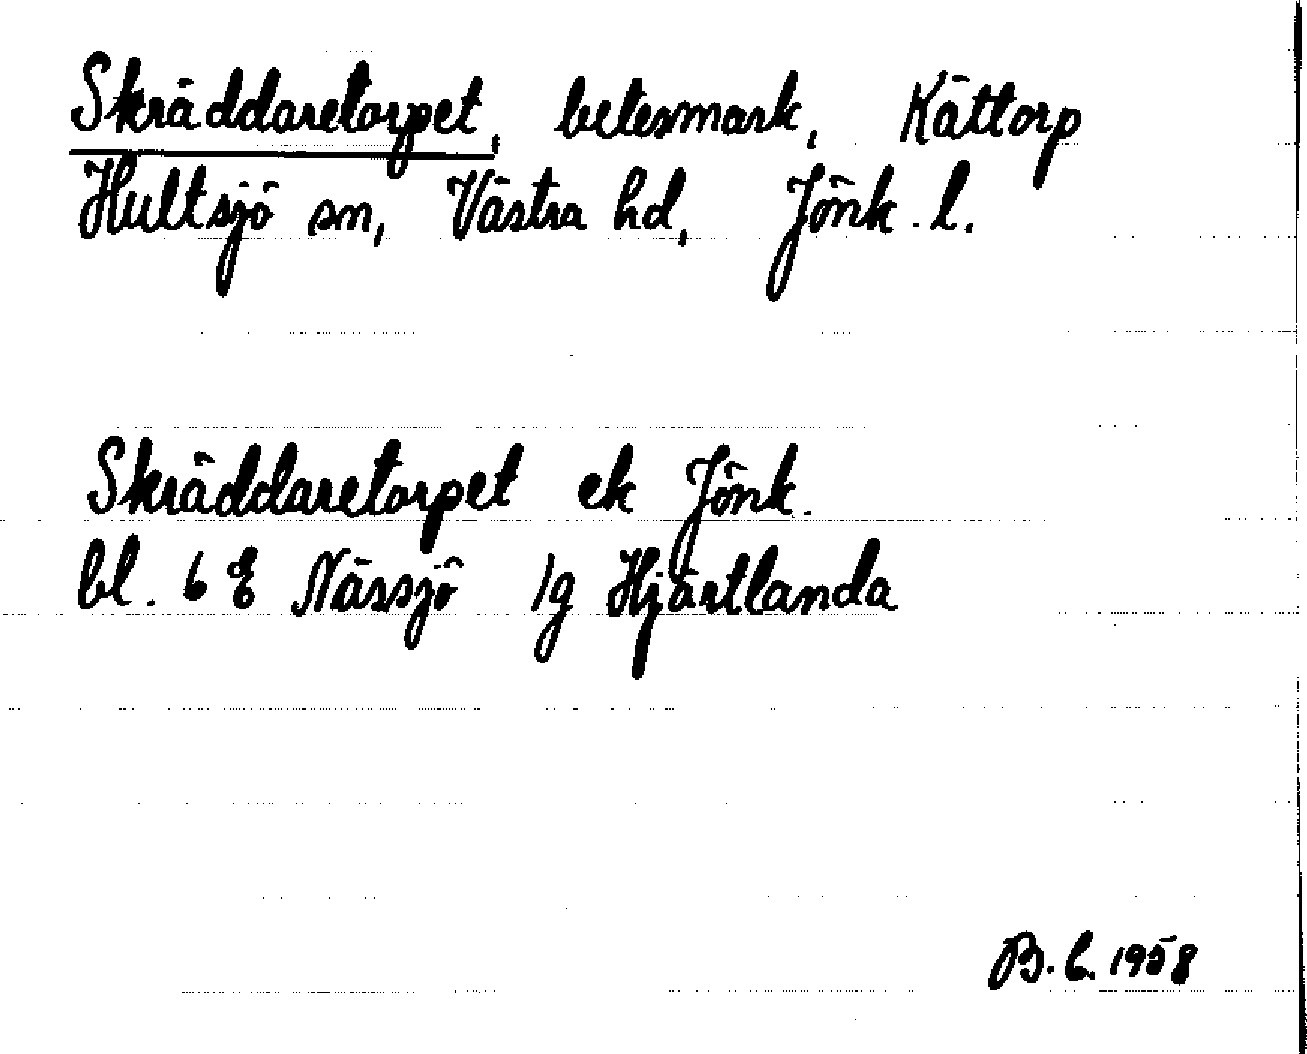 Skräddaretorpet, betesmark, Kättorp
Hultsjö sn, Västra hd, Jönk. l.
Skräddaretorpet ek Jönk.
bl. 6 E Nässjö 1g Hjärtlanda
B. L. 1958